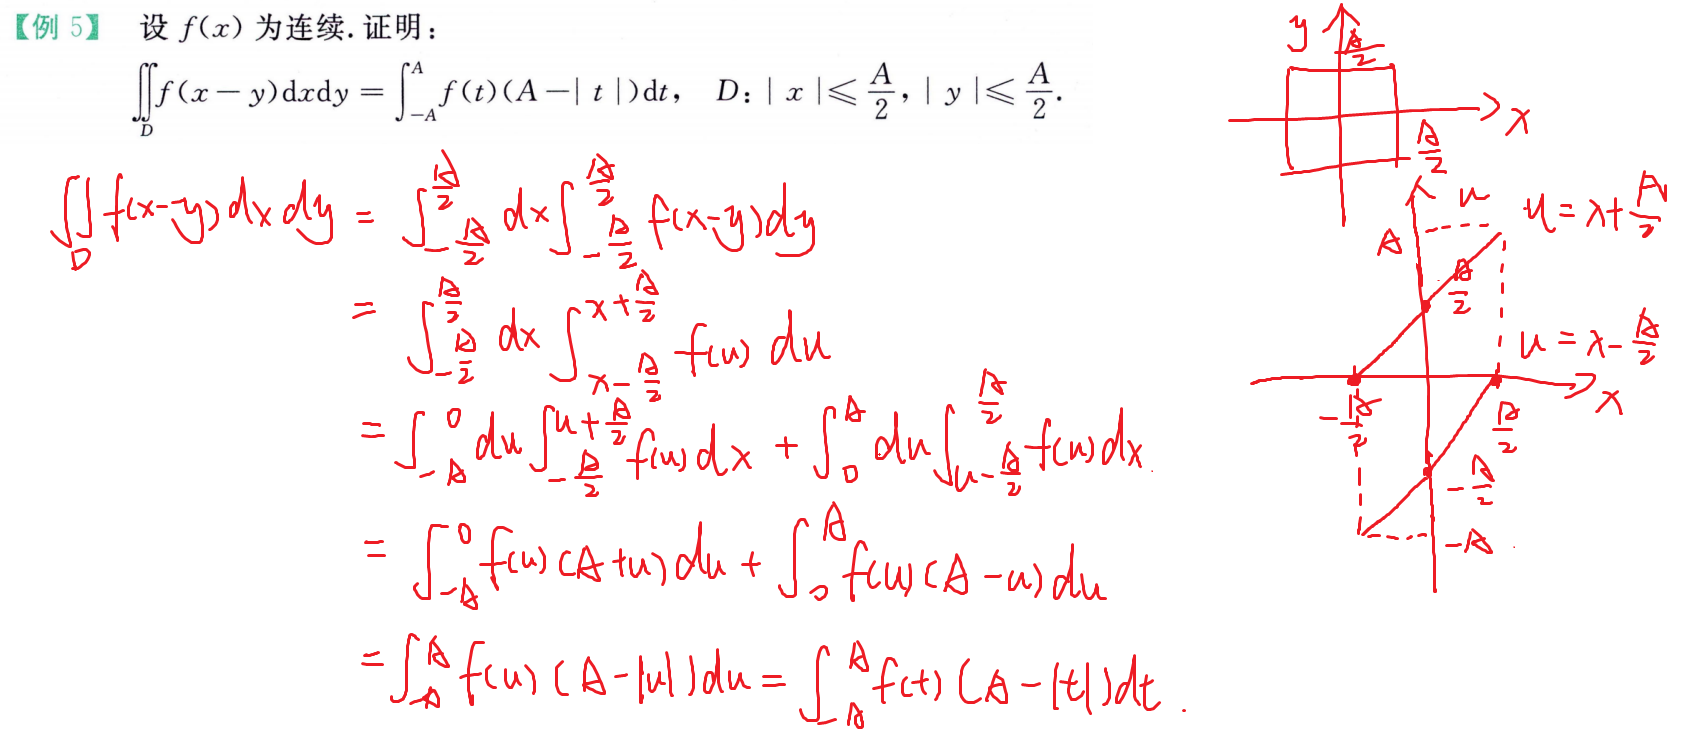 【例 5】 设 f(x) 为连续. 证明：
∬_D f(x－y)dxdy = ∫_{-A}^{A} f(t)(A－| t |)dt， D：| x |≤ A/2，| y |≤ A/2.
∬_D f(x-y) dx dy = ∫_{-A/2}^{A/2} dx ∫_{-A/2}^{A/2} f(x-y)dy
= ∫_{-A/2}^{A/2} dx ∫_{x-A/2}^{x+A/2} f(u) du
= ∫_{-A}^{0} du ∫_{-A/2}^{u+A/2} f(u) dx + ∫_{0}^{A} du ∫_{u-A/2}^{A/2} f(u) dx.
= ∫_{-A}^{0} f(u) (A+u) du + ∫_{0}^{A} f(u) (A-u) du
= ∫_{-A}^{A} f(u) (A-|u|) du = ∫_{-A}^{A} f(t) (A-|t|) dt.
y
A/2
x
A/2
u
u = x + A/2
A
A/2
u = x - A/2
x
-A/2
A/2
-A/2
-A